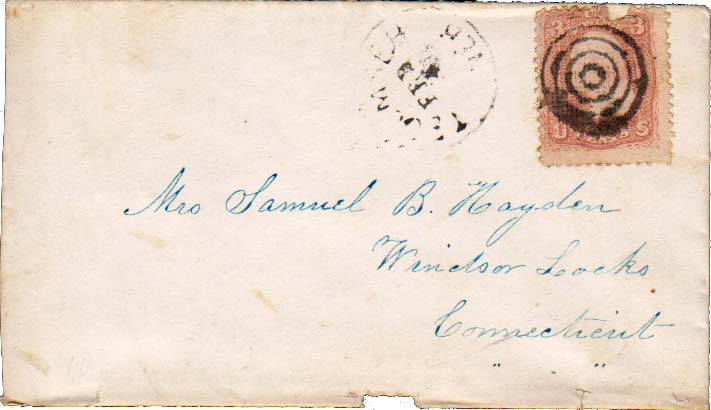 3 3
FEB
U S
Mrs Samuel B. Hayden
Windsor Locks
Connecticut
" " "